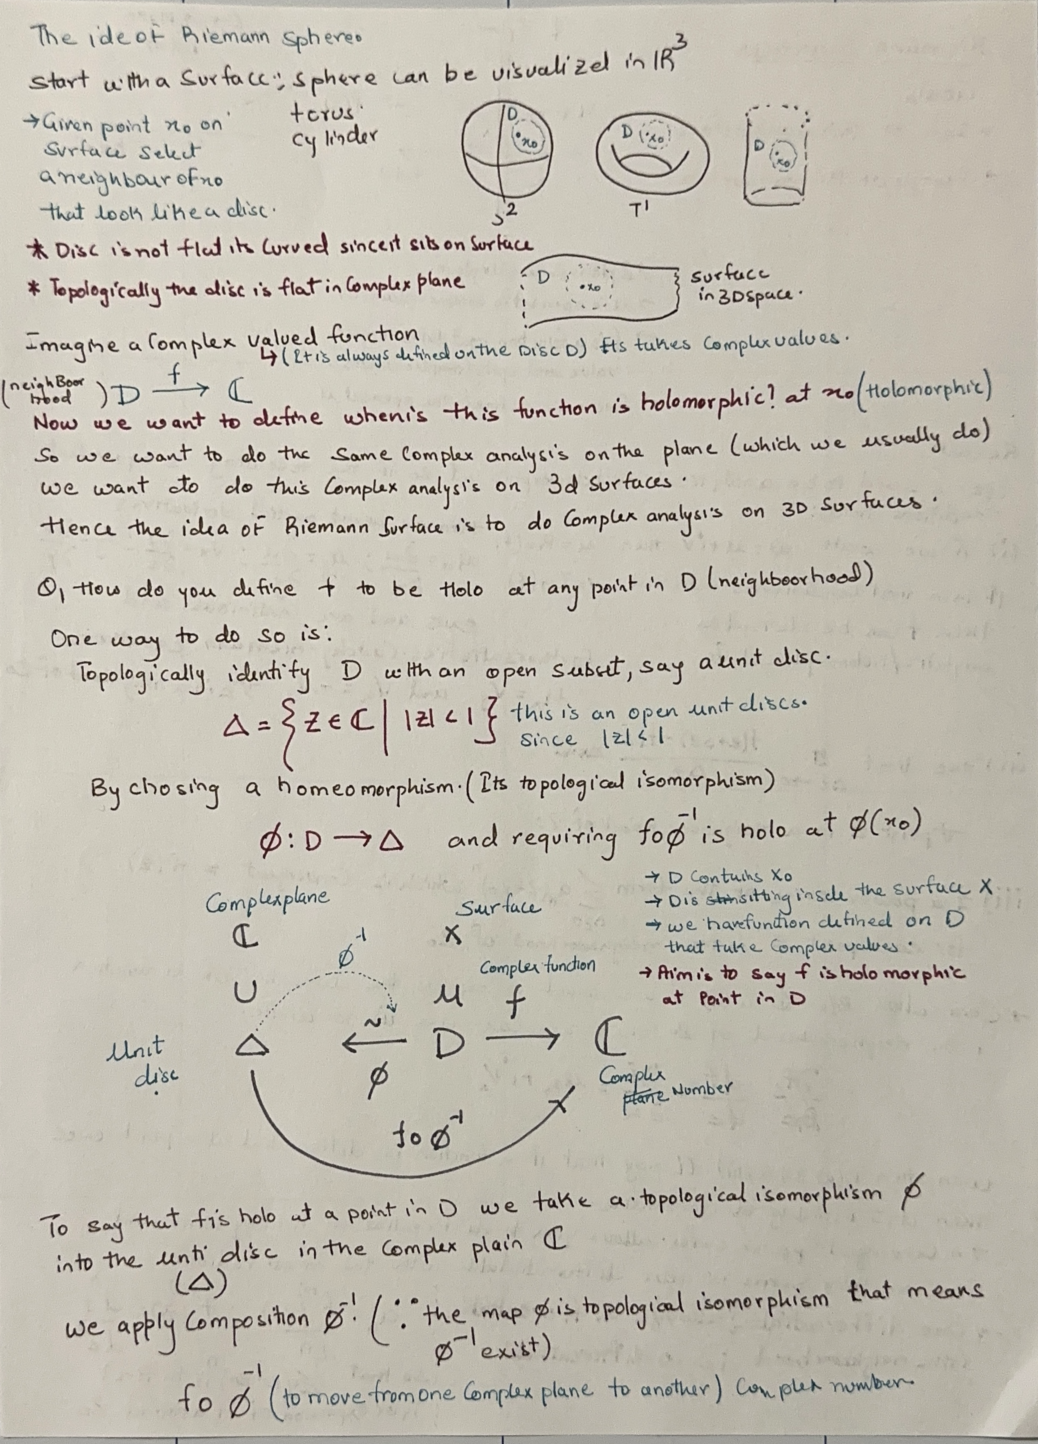 The ide of Riemann Sphere.
Start with a Surface; sphere can be visualized in ℝ³
torus
cylinder
→ Given point x₀ on
surface select
a neighbour of x₀
that look like a disc.
D x₀
S²
D x₀
T¹
D x₀
* Disc is not flat its Curved since it sits on Surface
* Topologically the disc is flat in Complex plane
D x₀
surface
in 3D space.
Imagine a Complex valued function
↳ (It is always defined on the Disc D) Its takes Complex values.
(neighBoor hood) D →f ℂ
Now we want to define when is this function is holomorphic? at x₀ (Holomorphic)
So we want to do the Same Complex analysis on the plane (which we usually do)
we want to do this Complex analysis on 3d Surfaces.
Hence the idea of Riemann Surface is to do Complex analysis on 3D Surfaces.
Q, How do you define f to be Holo at any point in D (neighboorhood)
One way to do so is:
Topologically identify D with an open subset, say a unit disc.
Δ = { z ∈ ℂ | |z| < 1 } this is an open unit discs.
since |z| < 1
By chosing a homeomorphism. (Its topological isomorphism)
ϕ: D → Δ and requiring foϕ⁻¹ is holo at ϕ(x₀)
→ D Contains x₀
→ D is sitting inside the surface X
→ we have function defined on D
that take Complex values.
→ Aim is to say f is holomorphic
at Point in D
Complex plane
ℂ
Surface
X
ϕ⁻¹
Complex function
U U f
Unit
disc
Δ ←~ D → ℂ
ϕ
Complex
plane Number
foϕ⁻¹
To say that f is holo at a point in D we take a topological isomorphism ϕ
into the unti disc in the Complex plain ℂ
(Δ)
we apply Composition ϕ⁻¹. (∵ the map ϕ is topological isomorphism that means
ϕ⁻¹ exist)
foϕ⁻¹ (to move from one Complex plane to another) Complex number